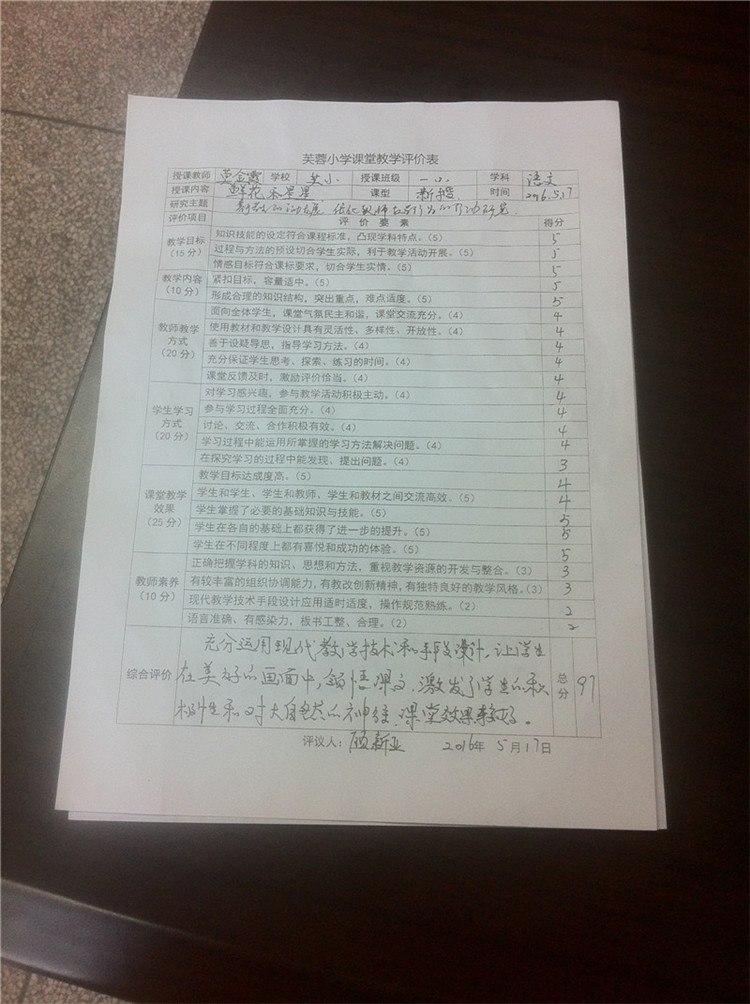 芙蓉小学课堂教学评价表
授课教师 莫金霞 学校 芙小 授课班级 一(1) 学科 语文
授课内容 鲜花和星星 课型 新授 时间 2016.5.17
研究主题
评价项目 评 价 要 素 得分
教学目标(15分) 知识技能的设定符合课程标准，凸现学科特点。(5) 5
过程与方法的预设切合学生实际，利于教学活动开展。(5) 5
情感目标符合课标要求，切合学生实情。(5) 5
教学内容(10分) 紧扣目标，容量适中。(5) 5
形成合理的知识结构，突出重点，难点适度。(5) 5
教师教学方式(20分) 面向全体学生，课堂气氛民主和谐，课堂交流充分。(4) 4
使用教材和教学设计具有灵活性、多样性、开放性。(4) 4
善于设疑导思，指导学习方法。(4) 4
充分保证学生思考、探索、练习的时间。(4) 4
课堂反馈及时，激励评价恰当。(4) 4
学生学习方式(20分) 对学习感兴趣，参与教学活动积极主动。(4) 4
参与学习过程全面充分。(4) 4
讨论、交流、合作积极有效。(4) 4
学习过程中能运用所掌握的学习方法解决问题。(4) 4
在探究学习的过程中能发现、提出问题。(4) 3
课堂教学效果(25分) 教学目标达成度高。(5) 4
学生和学生、学生和教师、学生和教材之间交流高效。(5) 4
学生掌握了必要的基础知识与技能。(5) 5
学生在各自的基础上都获得了进一步的提升。(5) 5
学生在不同程度上都有喜悦和成功的体验。(5) 5
教师素养(10分) 正确把握学科的知识、思想和方法，重视教学资源的开发与整合。(3) 3
有较丰富的组织协调能力，有教改创新精神，有独特良好的教学风格。(3) 3
现代教学技术手段设计应用适时适度，操作规范熟练。(2) 2
语言准确、有感染力，板书工整、合理。(2) 2
综合评价 充分运用现代教学技术和手段设计，让学生
在美好的画面中，领悟课文，激发了学生的积
极性和对大自然的神往，课堂效果较好。
总分 97
评议人：顾新亚 2016年5月17日